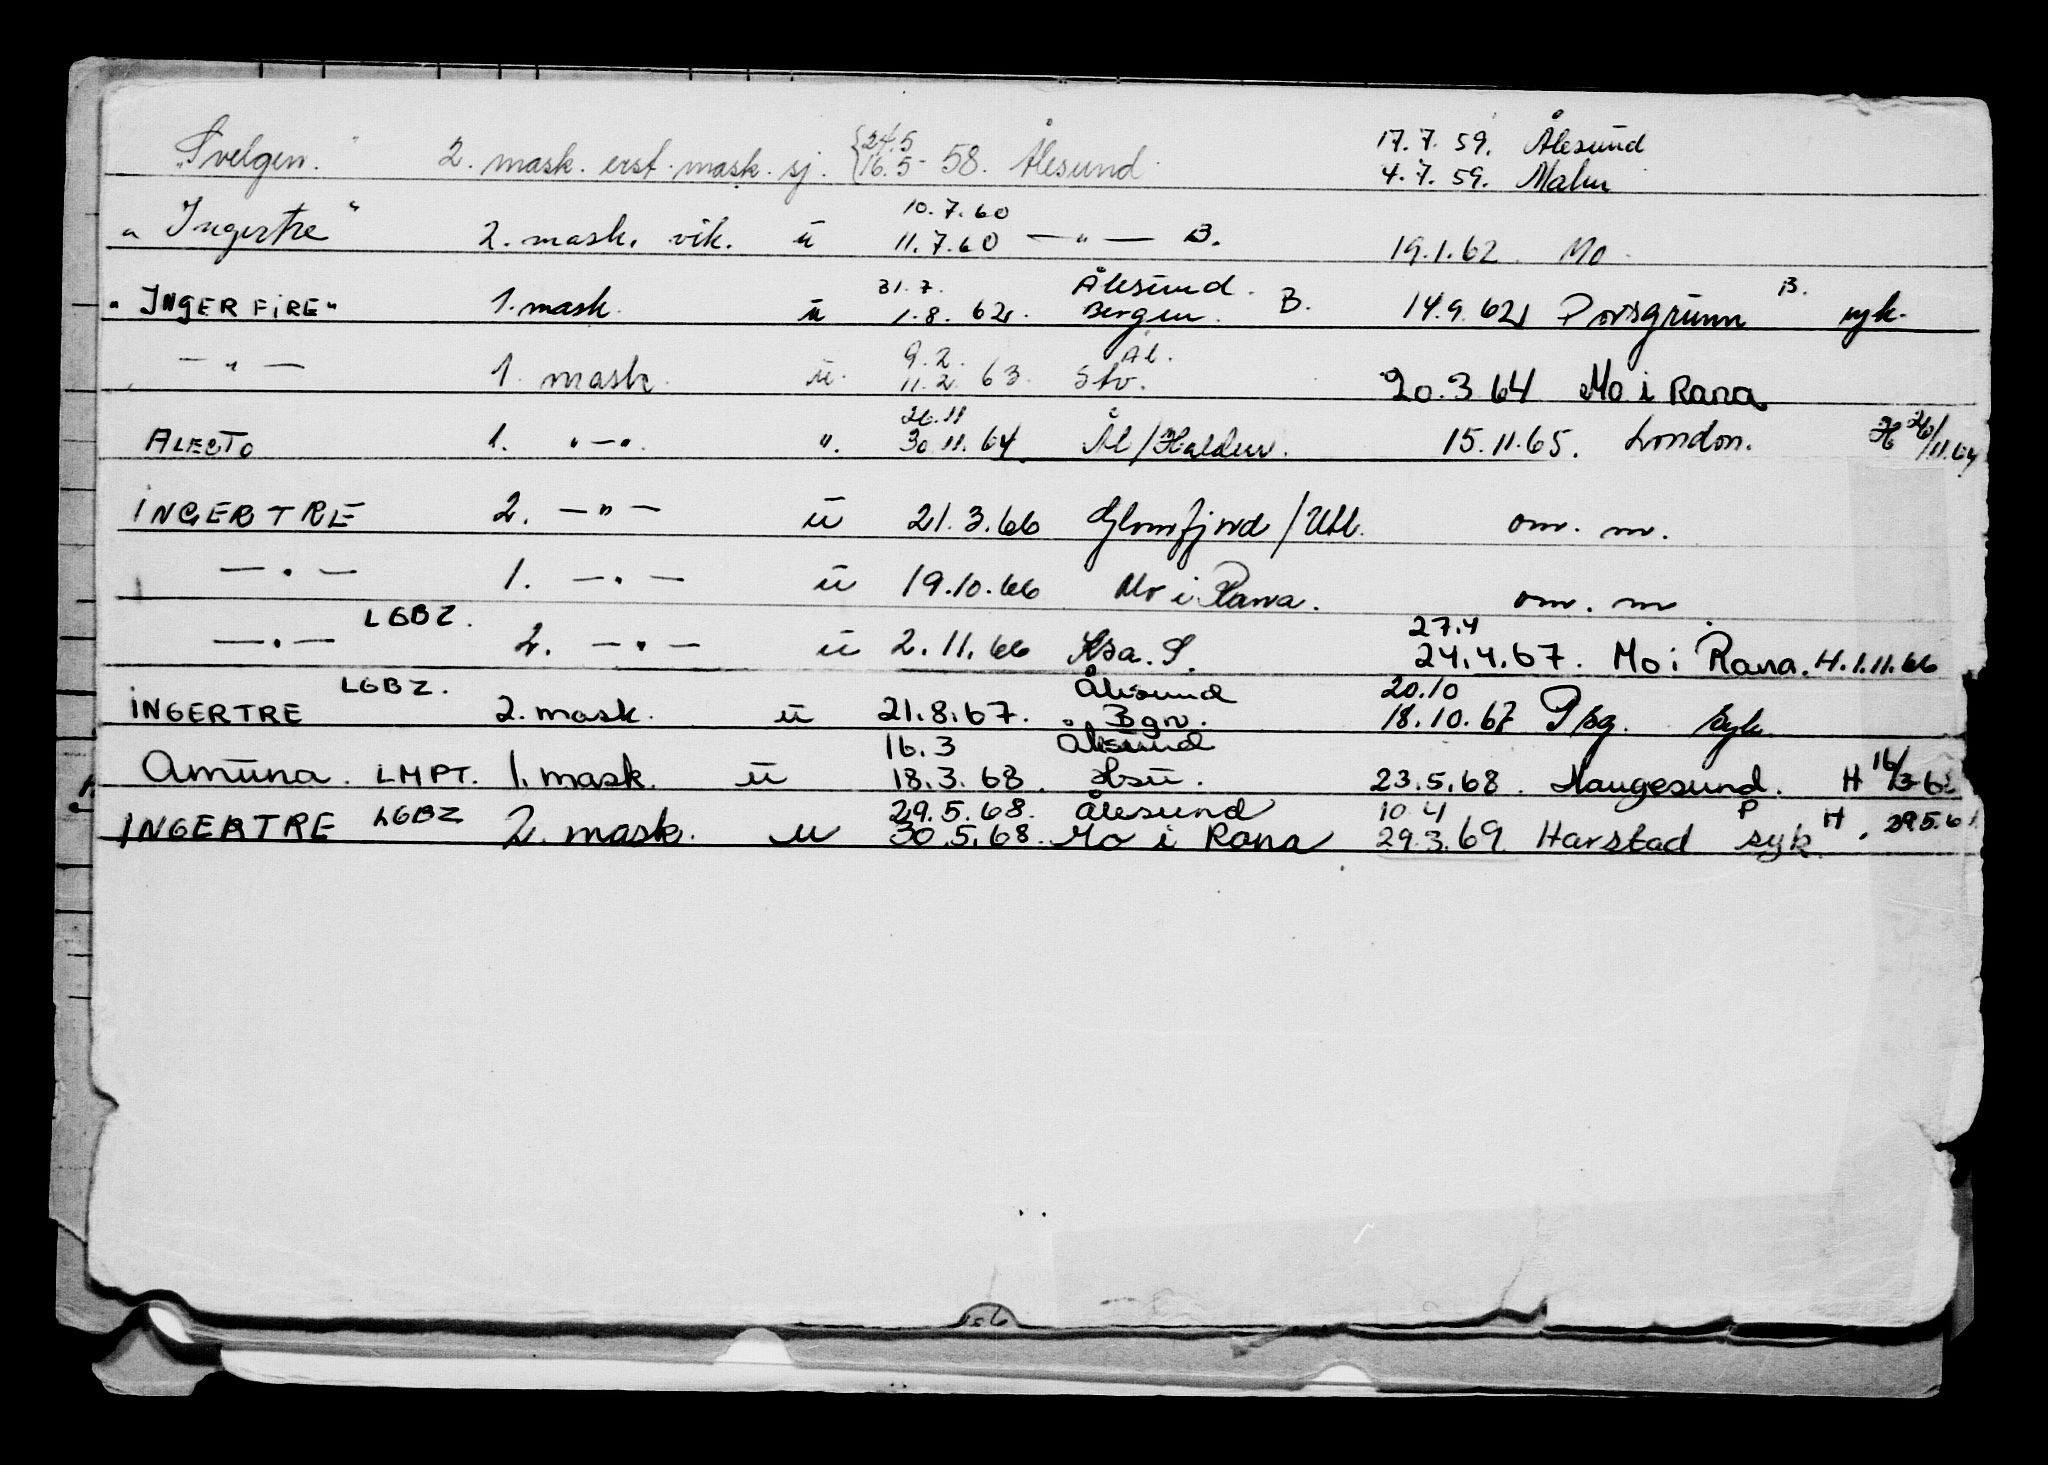 "Svelgen." 2. mask. erst. mask. sj. {24.5 16.5 - 58. Ålesund 17.7.59. Ålesund
4.7.59. Malm
"Ingertre" 2. mask. vik. u 10.7.60 11.7.60 — " — B. 19.1.62 Mo
"INGERFIRE" 1. mask. u 31.7. 1.8.62. Ålesund. Bergen. B. 14.9.62 Porsgrunn B. syk.
— " — 1. mask. u. 9.2. 11.2.63. Ål. Stv. 20.3.64 Mo i Rana
ALECTO 1. " — ". ". 26.11 30.11.64. Ål/Halden. 15.11.65. London. H 26/11.64
INGERTRE 2. — " — u 21.3.66 Glomfjord/Utl. om. m.
— " — 1. — " — u 19.10.66 Mo i Rana. om. m
— " — LGBZ. 2. — " — u 2.11.66 Ksa. S. 27.4 24.4.67. Mo i Rana. H. 1.11.66
INGERTRE LGBZ. 2. mask. u 21.8.67. Ålesund Bgn. 20.10 18.10.67 Psg. syk.
Amuna. LMPT. 1. mask. u 16.3 18.3.68. Ålesund Hsu. 23.5.68. Haugesund. H 16/3-68
INGERTRE LGBZ 2. mask. u 29.5.68. 30.5.68. Ålesund Mo i Rana 10.4 29.3.69 Harstad P syk. H. 29.5.68